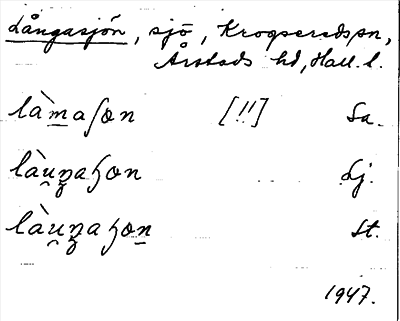 Långasjön, sjö, Krogseredssn,
Årstads hd, Hall. l.
làmaʃɷn [!!] Sa.
làu̯ŋaɧɷn Lj.
làu̯ŋaɧɷn St.
1947.